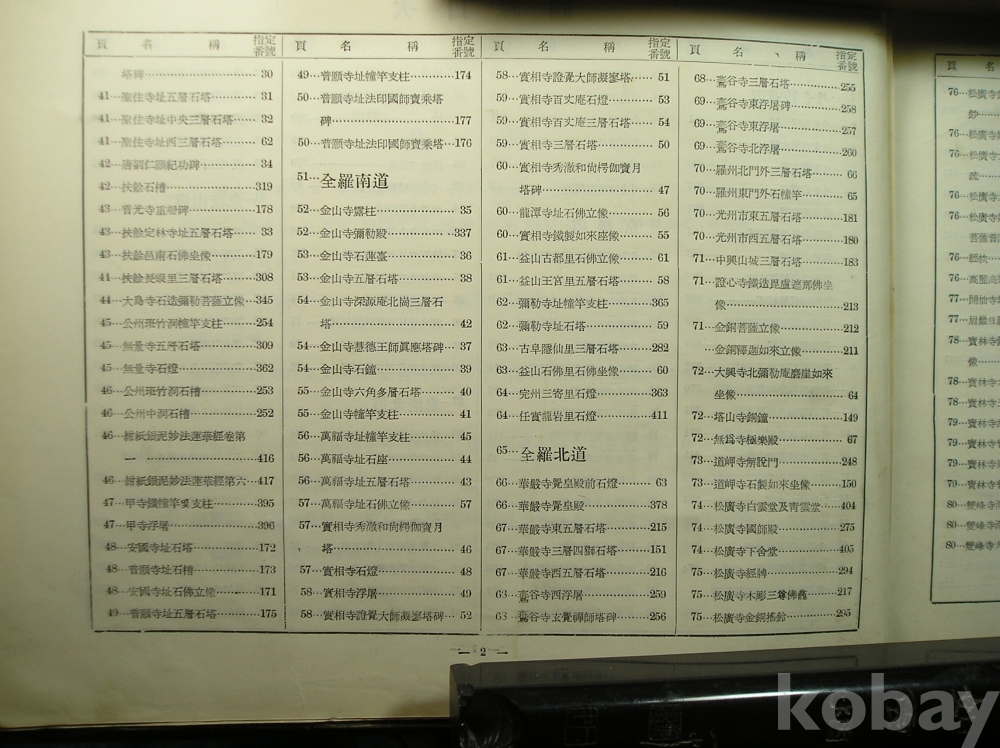 頁 名 稱 指定番號
塔碑 30
41 聖住寺址五層石塔 31
41 聖住寺址中央三層石塔 32
41 聖住寺址西三層石塔 62
42 唐劉仁願紀功碑 34
42 扶餘石槽 319
43 普光寺重刱碑 178
43 扶餘定林寺址五層石塔 33
43 扶餘邑南石佛坐像 179
41 扶餘長蝦里三層石塔 308
44 大鳥寺石造彌勒菩薩立像 345
45 公州班竹洞幢竿支柱 254
45 無量寺五層石塔 309
45 無量寺石燈 362
46 公州班竹洞石槽 253
46 公州中洞石槽 252
46 紺紙銀泥妙法蓮華經卷第
一 416
46 紺紙銀泥妙法蓮華經第六 417
47 甲寺鐵幢竿及支柱 395
47 甲寺浮屠 396
48 安國寺址石塔 172
48 普願寺址石槽 173
48 安國寺址石佛立像 171
49 普願寺址五層石塔 175
頁 名 稱 指定番號
49 普願寺址幢竿支柱 174
50 普願寺址法印國師寶乘塔
碑 177
50 普願寺址法印國師寶乘塔 176
51 全羅南道
52 金山寺露柱 35
52 金山寺彌勒殿 337
53 金山寺石蓮臺 36
53 金山寺五層石塔 38
54 金山寺深源庵北崗三層石
塔 42
54 金山寺慧德王師眞應塔碑 37
54 金山寺石鐘 39
55 金山寺六角多層石塔 40
55 金山寺幢竿支柱 41
56 萬福寺址幢竿支柱 45
56 萬福寺址石座 44
56 萬福寺址五層石塔 43
57 萬福寺址石佛立像 57
57 實相寺秀澈和尙楞伽寶月
塔 46
57 實相寺石燈 48
58 實相寺浮屠 49
58 實相寺證覺大師凝寥塔碑 52
頁 名 稱 指定番號
58 實相寺證覺大師凝寥塔 51
59 實相寺百丈庵石燈 53
59 實相寺百丈庵三層石塔 54
59 實相寺三層石塔 50
60 實相寺秀澈和尙楞伽寶月
塔碑 47
60 龍潭寺址石佛立像 56
60 實相寺鐵製如來座像 55
61 益山古都里石佛立像 61
61 益山王宮里五層石塔 58
62 彌勒寺址幢竿支柱 365
62 彌勒寺址石塔 59
63 古阜隱仙里三層石塔 282
63 益山石佛里石佛坐像 60
64 完州三寄里石燈 363
64 任實龍岩里石燈 411
65 全羅北道
66 華嚴寺覺皇殿前石燈 63
66 華嚴寺覺皇殿 378
67 華嚴寺東五層石塔 215
67 華嚴寺三層四獅石塔 151
67 華嚴寺西五層石塔 216
63 鷰谷寺西浮屠 259
63 鷰谷寺玄覺禪師塔碑 256
頁 名 稱 指定番號
68 鷰谷寺三層石塔 255
69 鷰谷寺東浮屠碑 258
69 鷰谷寺東浮屠 257
69 鷰谷寺北浮屠 260
70 羅州北門外三層石塔 66
70 羅州東門外石幢竿 65
70 光州市東五層石塔 181
70 光州市西五層石塔 180
71 中興山城三層石塔 183
71 證心寺鐵造毘盧遮那佛坐
像 213
71 金銅菩薩立像 212
金銅釋迦如來立像 211
72 大興寺北彌勒庵磨崖如來
坐像 64
72 塔山寺銅鐘 149
72 無爲寺極樂殿 67
73 道岬寺解說門 248
73 道岬寺石製如來坐像 150
74 松廣寺白雲堂及靑雲堂 404
74 松廣寺國師殿 275
74 松廣寺下舍堂 405
75 松廣寺經牌 294
75 松廣寺木彫三尊佛龕 217
75 松廣寺金銀搖鈴 295
— 2 —
頁 名
76 松廣寺
76 松廣寺
76 松廣寺
76 松廣寺
76
76 高麗高
77
78 寶林寺
像
78 寶林寺
78 寶林寺
79 寶林寺
79 寶林寺
79 寶林寺
80 雙峰寺
80 雙峰寺
80 雙峰寺
kobay